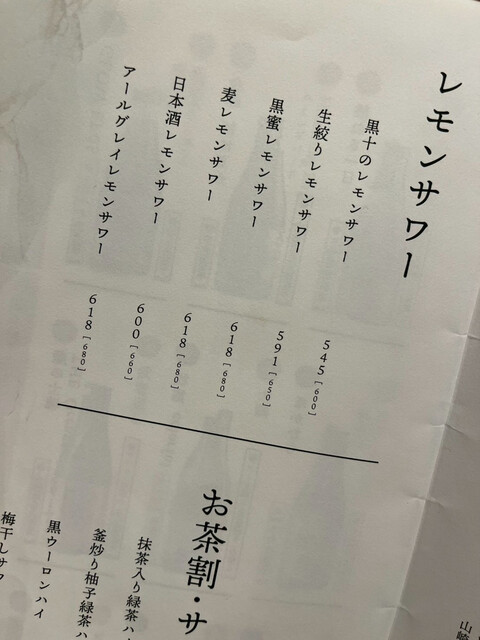 レモンサワー
黒十のレモンサワー 545[600]
生絞りレモンサワー 591[650]
黒蜜レモンサワー 618[680]
麦レモンサワー 618[680]
日本酒レモンサワー 600[660]
アールグレイレモンサワー 618[680]
お茶割・サ
抹茶入り緑茶ハ
釜炒り柚子緑茶ハ
黒ウーロンハイ
梅干しサワ
山崎